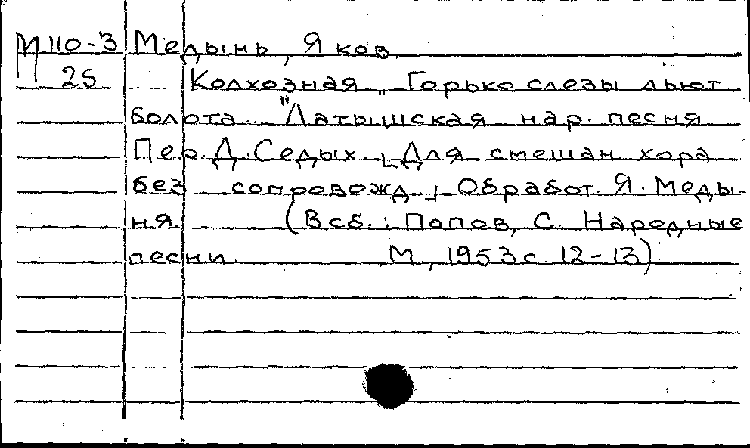 М 110-3 Медынь, Яков
25 Колхозная „Горько слезы льют
болота" Латышская нар. песня
Пер. Д. Седых. [Для смешан хора
без сопровожд.] Обработ. Я. Меды-
ня. (В сб.: Попов, С. Народные
песни М., 1953 с 12-13)